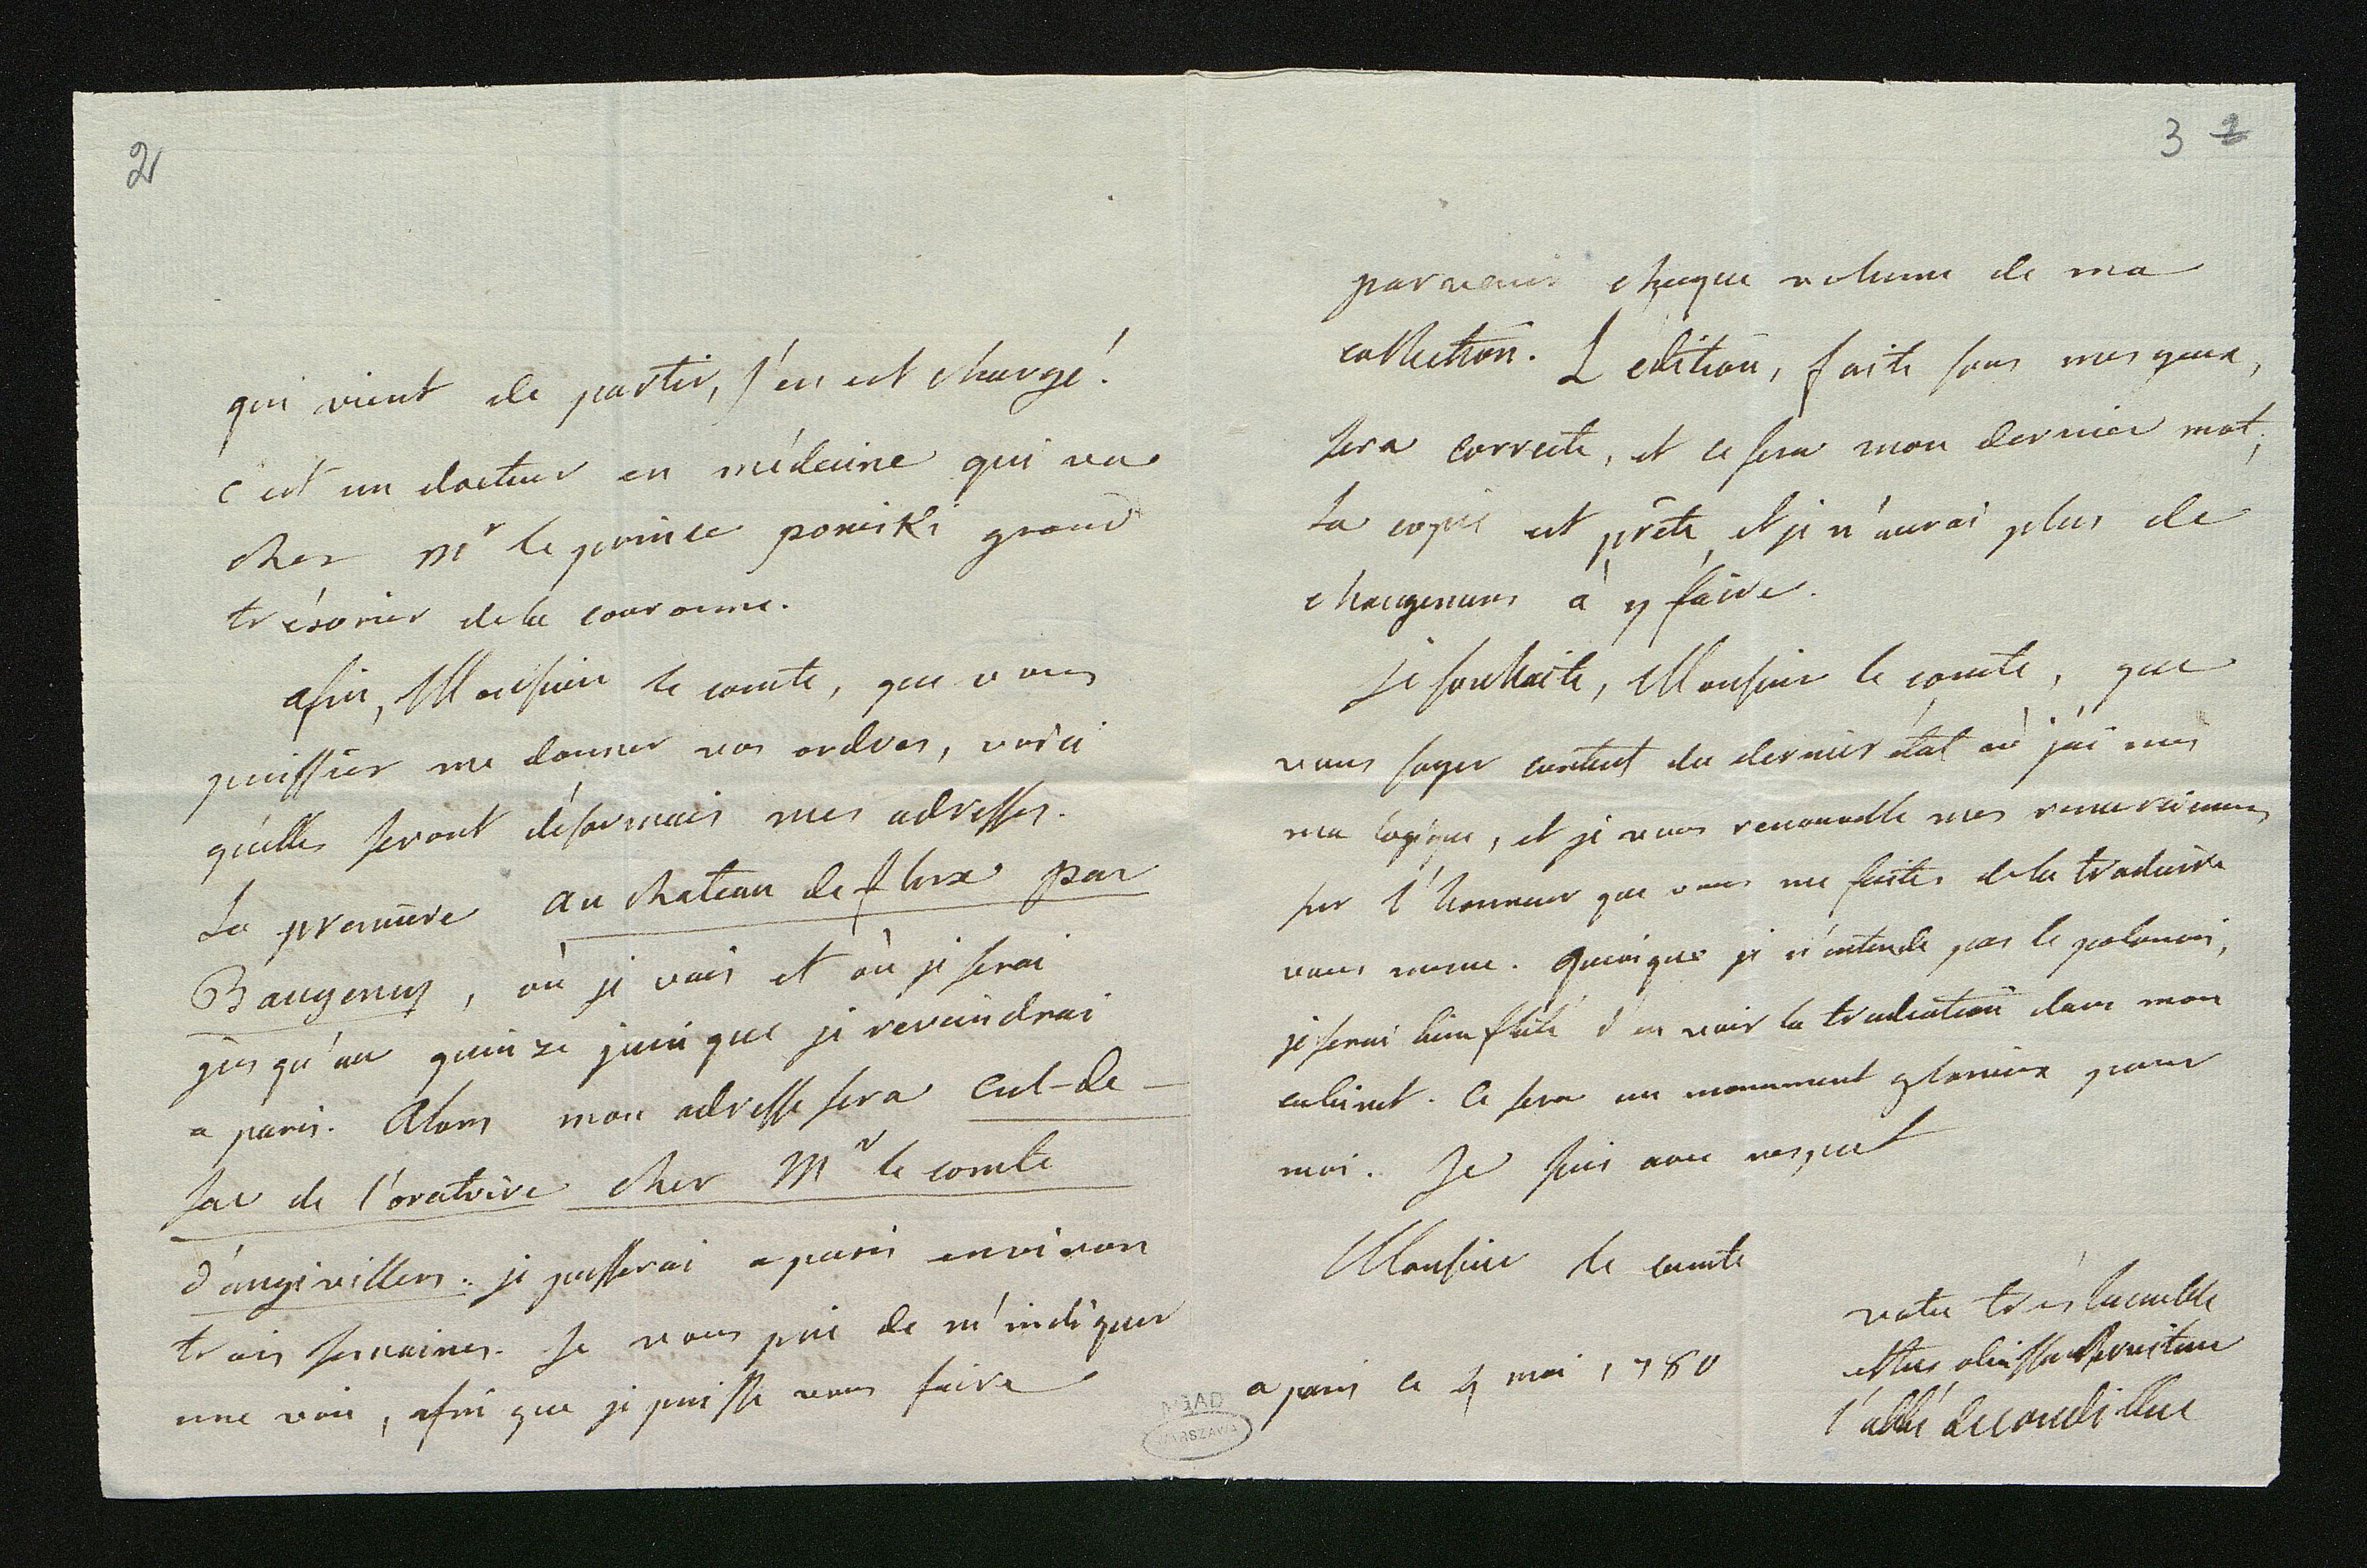 2
qui vient de partir, s'en est chargé.
c'est un docteur en médecine qui va
chez Mr le prince poniski grand
trésorier de la couronne.
afin, Monsieur le comte, que vous
puissiez me donner vos ordres, voici
quelles seront désormais mes adresses.
La premiere au chateau de flux par
Baugency, où je vais et où je serai
jusqu'au quinze juin que je reviendrai
a paris. Alors mon adresse sera cul-de-
sac de l'oratoire chez Mr le comte
d'angivillers. je passerai a paris environ
trois semaines. Je vous prie de m'indiquer
une voie, afin que je puisse vous faire
3 2
parvenir chaque volume de ma
collection. L'edition, faite sous mes yeux,
sera correcte, et ce sera mon dernier mot;
La copie est prête, et je n'aurai plus de
changemens à y faire.
je souhaite, Monsieur le comte, que
vous soyez content du dernier état où j'ai mis
ma logique, et je vous renouvelle mes remerciemens
sur l'honneur que vous me faites de la traduire
vous meme. Quoique je n'entende pas le polonois,
je serai bien flaté d'en voir la traduction dans mon
cabinet. Ce sera un monument glorieux pour
moi. Je suis avec respect
Monsieur le comte
votre très humble
et tres obeissant serviteur
a paris ce 4 mai 1780
l'abbé de condillac
AGAD
WARSZAWA